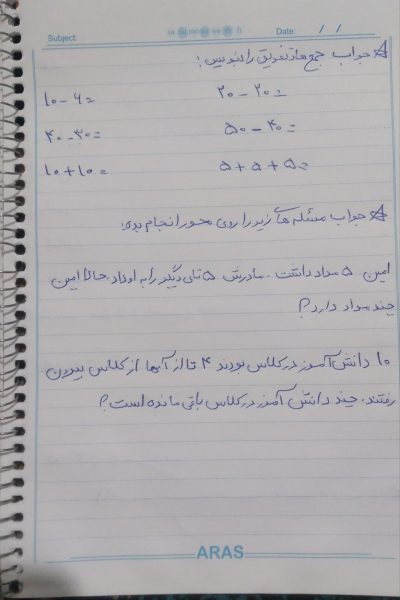 Subject: Date: / /
☆ جواب جمع ها و تفریق را بنویس:
۲۰ - ۲۰ = ۱۰ - ۶ =
۵۰ - ۴۰ = ۴۰ - ۳۰ =
۵ + ۵ + ۵ = ۱۰ + ۱۰ =
☆ جواب مسئله های زیر را روی محور انجام بده:
امین ۵ مداد داشت. مادرش ۵ تای دیگر را به او داد. حالا امین
چند مداد دارد؟
۱۰ دانش آموز در کلاس بودند ۴ تا از آنها از کلاس بیرون
رفتند. چند دانش آموز در کلاس باقی مانده است؟
ARAS